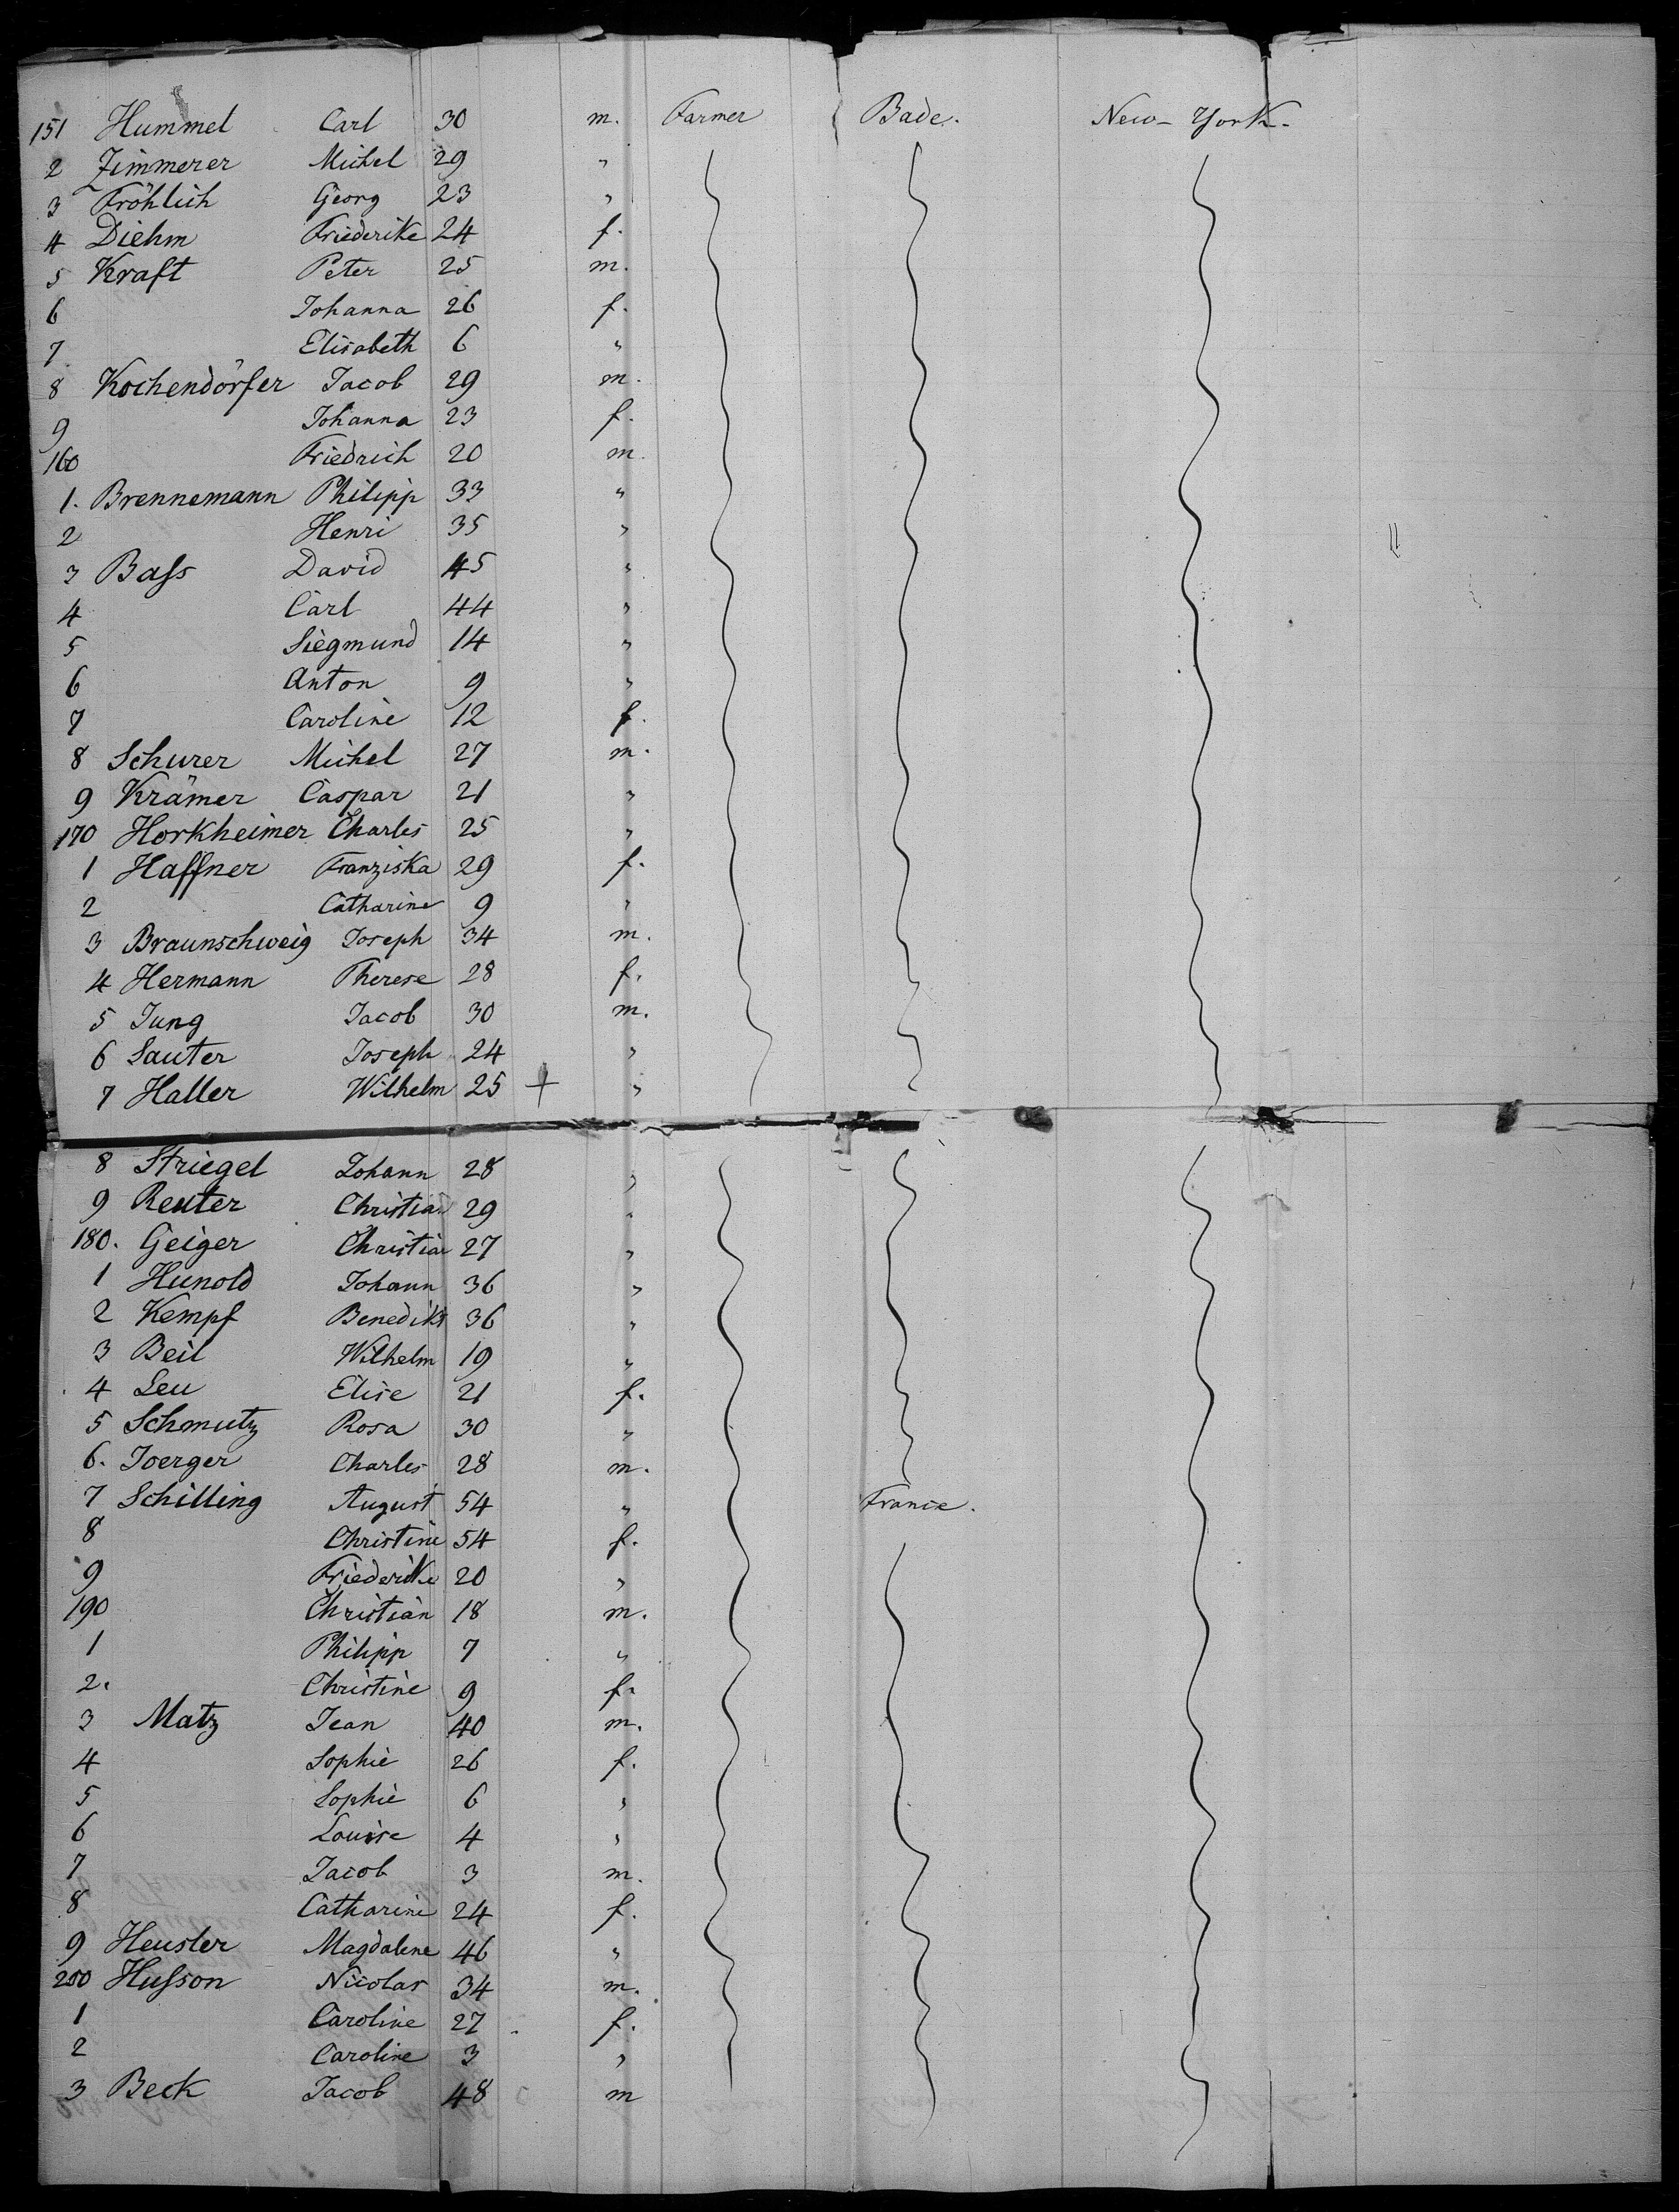 151 Hummel Carl 30 m. Farmer Bade. New-York.
2 Zimmerer Michel 29 "
3 Fröhlich Georg 23 "
4 Diehm Friederike 24 f.
5 Kraft Peter 25 m.
6 Johanna 26 f.
7 Elisabeth 6 "
8 Kochendörfer Jacob 29 m.
9 Johanna 23 f.
160 Friedrich 20 m.
1. Brennemann Philipp 33 "
2 Henri 35 "
3 Baſs David 45 "
4 Carl 44 "
5 Siegmund 14 "
6 Anton 9 "
7 Caroline 12 f.
8 Schurer Michel 27 m.
9 Krämer Caspar 21 "
170 Horkheimer Charles 25 "
1 Haffner Franziska 29 f.
2 Catharine 9 "
3 Braunschweig Joseph 34 m.
4 Hermann Therese 28 f.
5 Jung Jacob 30 m.
6 Sauter Joseph 24 "
7 Haller Wilhelm 25 + "
8 Striegel Johann 28 "
9 Reuter Christian 29 "
180. Geiger Christian 27 "
1 Hunold Johann 36 "
2 Kempf Benedikt 36 "
3 Beil Wilhelm 19 "
4 Leu Elise 21 f.
5 Schmutz Rosa 30 "
6. Joerger Charles 28 m.
7 Schilling August 54 " France.
8 Christine 54 f.
9 Friederike 20 "
190 Christian 18 m.
1 Philipp 7 "
2. Christine 9 f.
3 Matz Jean 40 m.
4 Sophie 26 f.
5 Sophie 6 "
6 Louise 4 "
7 Jacob 3 m.
8 Catharine 24 f.
9 Heusler Magdalene 46 "
200 Huſson Nicolas 34 m.
1 Caroline 27 f.
2 Caroline 3 "
3 Beck Jacob 48 m